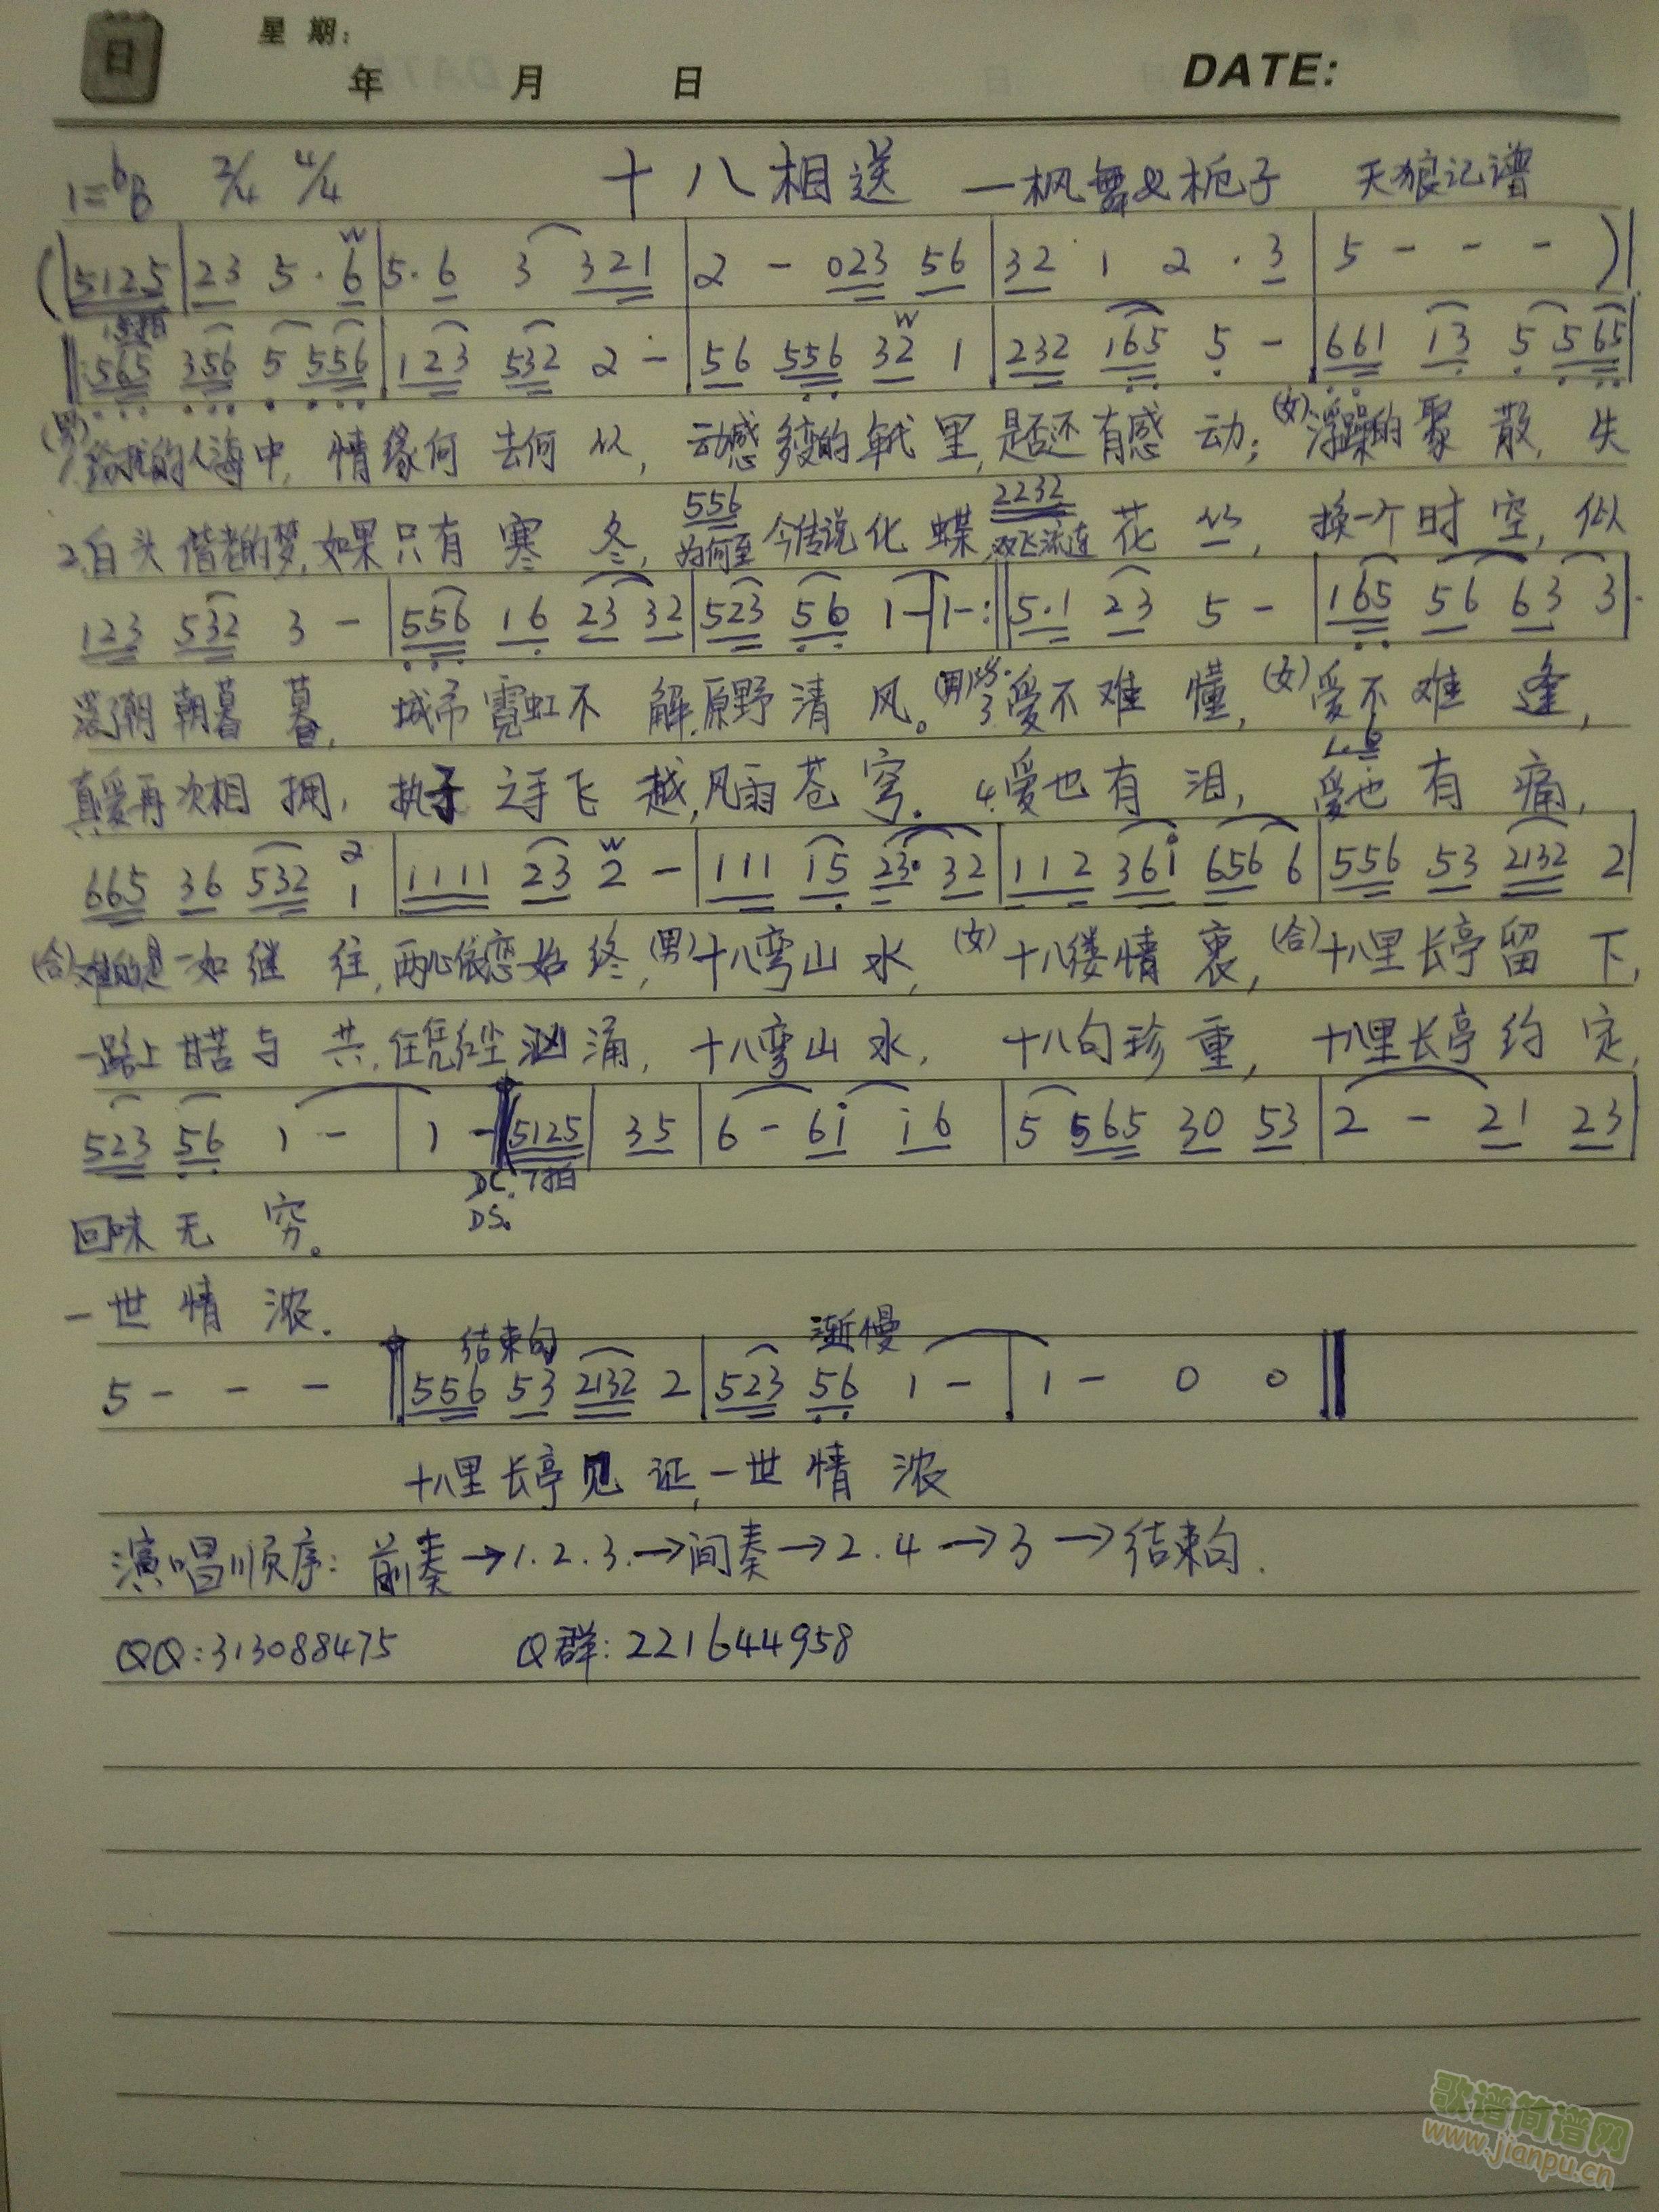 日 星期:
年 月 日 DATE:
1=bB 2/4 4/4 十八相送 —枫舞&栀子 天狼记谱
(5125|23 5·6|5·6 3 321|2 - 023 56|32 1 2·3|5 - - -)|
‖:565 356 5 556|123 532 2 -|56 556 32 1|232 165 5 -|661 13 5 565|
(男)1.的人海中,情缘何去何从,动感多变的年代里,是否还有感动;(女)浮躁的聚散,失
556 2232
2.白头偕老的梦,如果只有寒冬,为何至今传说化蝶,双飞流连花丛,换一个时空,似
123 532 3 -|556 16 23 32|523 56 1-|1-:‖5·1 23 5 -|165 56 63 3|
落了朝朝暮暮,城市霓虹不解,原野清风。(男)3.爱不难懂,(女)爱不难逢,
1·6
真爱再次相拥,执子之手飞越,风雨苍穹。4.爱也有泪,爱也有痛,
2
665 36 532 1|1111 23 2 -|111 15 23· 32|112 361 656 6|556 53 2132 2|
(合)难的是一如继往,两心依恋始终,(男)十八弯山水,(女)十八缕情衷,(合)十八里长亭留下,
一路上甘苦与共,任凭红尘汹涌,十八弯山水,十八句珍重,十八里长亭约定,
523 56 1 -|1 -‖(5125|35|6 - 61 16|5 565 30 53|2 - 21 23|
DC. 7拍
DS.
回味无穷。
一世情浓.
结束句 渐慢
5 - - -‖556 53 2132 2|523 56 1 -|1 - 0 0‖
十八里长亭见证,一世情浓
演唱顺序: 前奏→1.2.3.→间奏→2.4→3→结束句.
QQ:313088475 Q群:221644958
歌谱简谱网
www.jianpu.cn